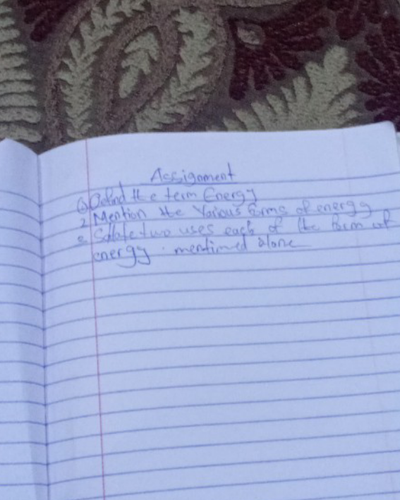 Assignment
① Defind the term Energy
2 Mention the Various forms of energy
3 two uses each of the form of
energy. mentioned alone